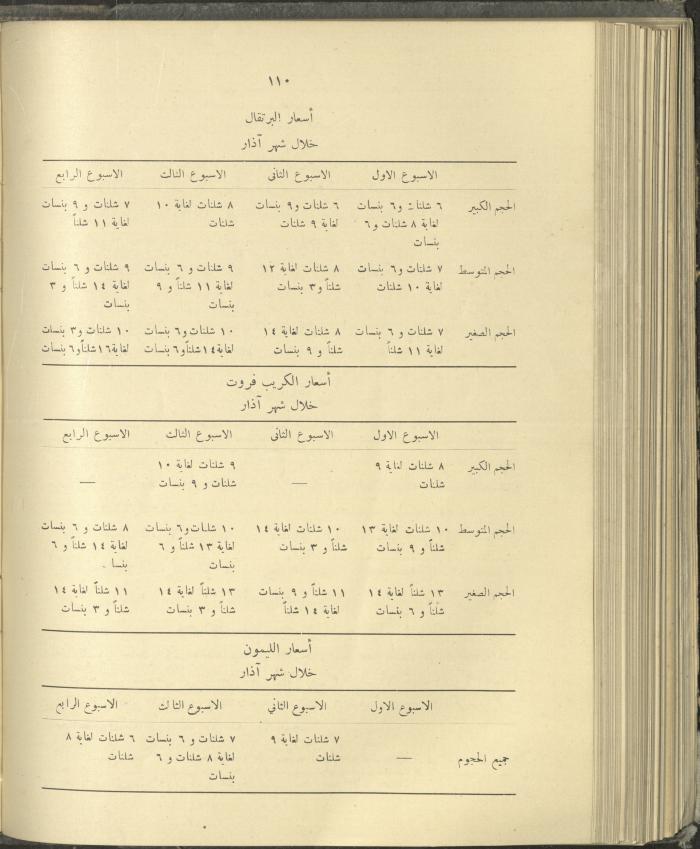 ١١٠
أسعار البرتقال
خلال شهر آذار
الاسبوع الاول الاسبوع الثاني الاسبوع الثالث الاسبوع الرابع
الحجم الكبير ٦ شلنات و٦ بنسات ٦ شلنات و٩ بنسات ٨ شلنات لغاية ١٠ ٧ شلنات و ٩ بنسات
لغاية ٨ شلنات و ٦ لغاية ٩ شلنات شلنات لغاية ١١ شلناً
بنسات
الحجم المتوسط ٧ شلنات و٦ بنسات ٨ شلنات لغاية ١٢ ٩ شلنات و ٦ بنسات ٩ شلنات و ٦ بنسات
لغاية ١٠ شلنات شلناً و٣ بنسات لغاية ١١ شلناً و ٩ لغاية ١٤ شلناً و ٣
بنسات بنسات
الحجم الصغير ٧ شلنات و ٦ بنسات ٨ شلنات لغاية ١٤ ١٠ شلنات و٦ بنسات ١٠ شلنات و٣ بنسات
لغاية ١١ شلناً شلناً و ٩ بنسات لغاية١٤شلناًو٦بنسات لغاية١٦شلناًو٦بنسات
أسعار الكريب فروت
خلال شهر آذار
الاسبوع الاول الاسبوع الثاني الاسبوع الثالث الاسبوع الرابع
الحجم الكبير ٨ شلنات لغاية ٩ — ٩ شلنات لغاية ١٠ —
شلنات شلنات و ٩ بنسات
الحجم المتوسط ١٠ شلنات لغاية ١٣ ١٠ شلنات لغاية ١٤ ١٠ شلنات و٦ بنسات ٨ شلنات و ٦ بنسات
شلناً و ٩ بنسات شلناً و ٣ بنسات لغاية ١٣ شلناً و ٦ لغاية ١٤ شلناً و ٦
بنسات بنسا .
الحجم الصغير ١٣ شلناً لغاية ١٤ ١١ شلناً و ٩ بنسات ١٣ شلناً لغاية ١٤ ١١ شلناً لغاية ١٤
شلناً و ٦ بنسات لغاية ١٤ شلناً شلناً و ٣ بنسات شلناً و ٣ بنسات
أسعار الليمون
خلال شهر آذار
الاسبوع الاول الاسبوع الثاني الاسبوع الثالث الاسبوع الرابع
جميع الحجوم — ٧ شلنات لغاية ٩ ٧ شلنات و ٦ بنسات ٦ شلنات لغاية ٨
شلنات لغاية ٨ شلنات و ٦ شلنات
بنسات